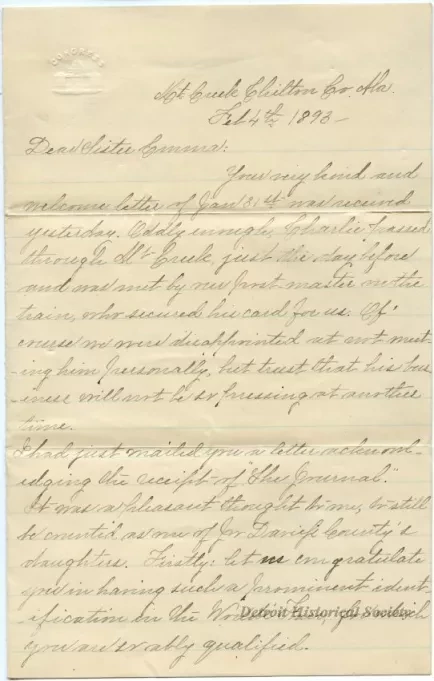 CONGRESS
Mt Creek Chilton Co. Ala.
Feb 4th, 1893 -
Dear Sister Emma:
Your very kind and
welcome letter of Jan 31st was received
yesterday. Oddly enough, Charlie passed
through Mt Creek, just the day before
and was met by our post master on the
train, who secured his card for us. Of
course we were disappointed at not meet-
-ing him personally, but trust that his bus
-iness will not be so pressing at another
time.
I had just mailed you a letter acknowl-
edging the receipt of "The Journal."
It was a pleasant thought to me, to still
be counted as one of Jo Daviess County's
daughters. Firstly: let us congratulate
you in having such a prominent ident-
ification in the for which
you are so ably qualified.
Detroit Historical Society